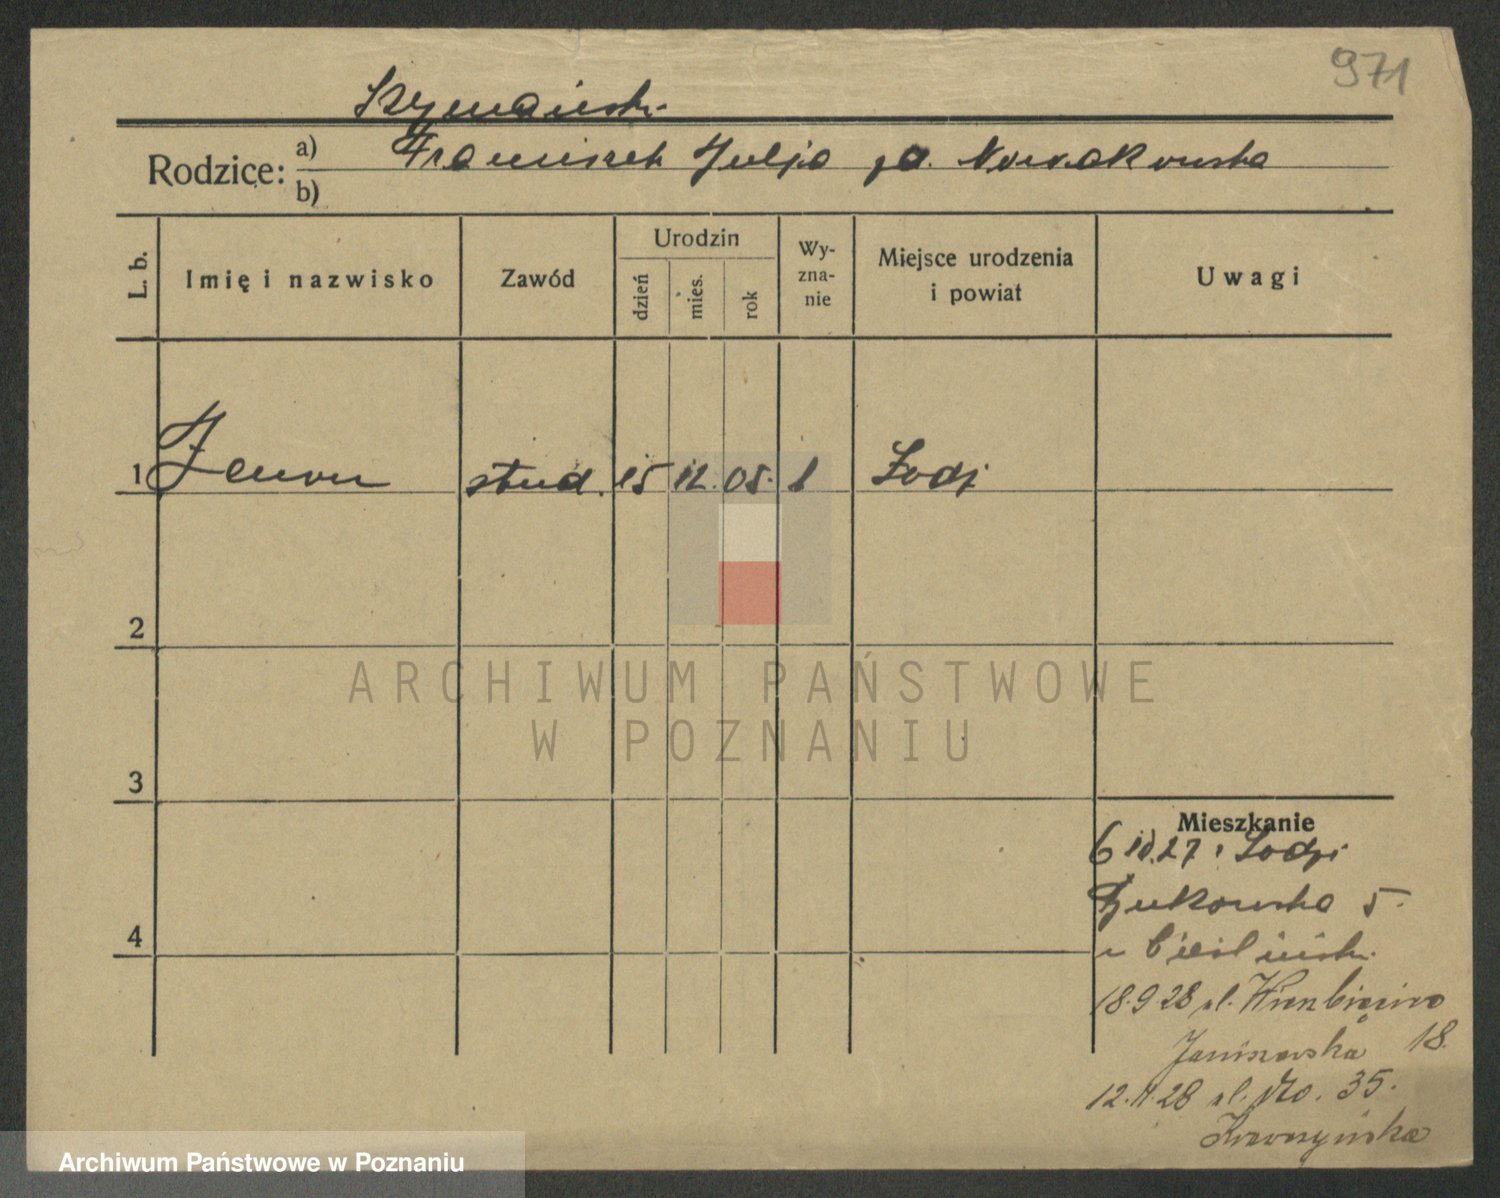 971
Szymański
Rodzice: a) Franciszek Julja zd. Nowakowska
b)
L. b.
Imię i nazwisko
Zawód
Urodzin
dzień
mies.
rok
Wy-
zna-
nie
Miejsce urodzenia
i powiat
Uwagi
1 Zenon stud. 15 12. 05. 1 Łodź
2
3
4
Mieszkanie
6 10.27 z Łodzi
Bukowska 5.
u Cieśliński
18.9.28 ul. Wierzbięcice
Janiszewska 18.
12.11.28 ul. 35.
ARCHIWUM PAŃSTWOWE
W POZNANIU
Archiwum Państwowe w Poznaniu